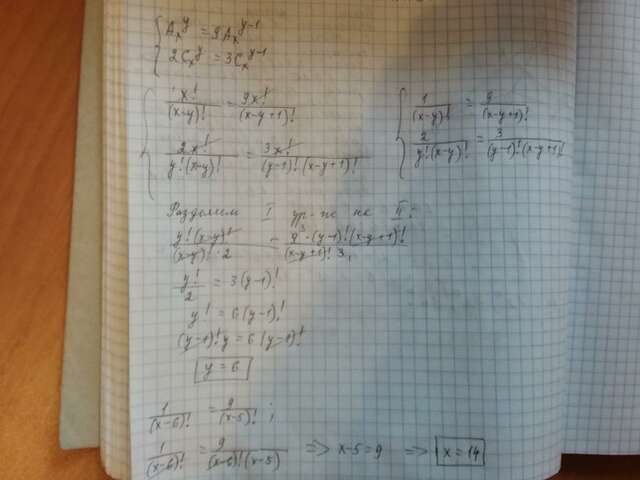 { A_x^y = 9A_x^{y-1}
{ 2C_x^y = 3C_x^{y-1}
{ x!/(x-y)! = 9x!/(x-y+1)!
{ 2x!/(y!(x-y)!) = 3x!/((y-1)!(x-y+1)!)
{ 1/(x-y)! = 9/(x-y+1)!
{ 2/(y!(x-y)!) = 3/((y-1)!(x-y+1)!)
Разделим I ур-ие на II:
y!(x-y)!/((x-y)!·2) = 9³·(y-1)!(x-y+1)!/((x-y+1)! 3,
y!/2 = 3(y-1)!
y! = 6(y-1)!
(y-1)!y = 6(y-1)!
y = 6
1/(x-6)! = 9/(x-5)! ;
1/(x-6)! = 9/((x-6)!(x-5)) => x-5=9 => x=14